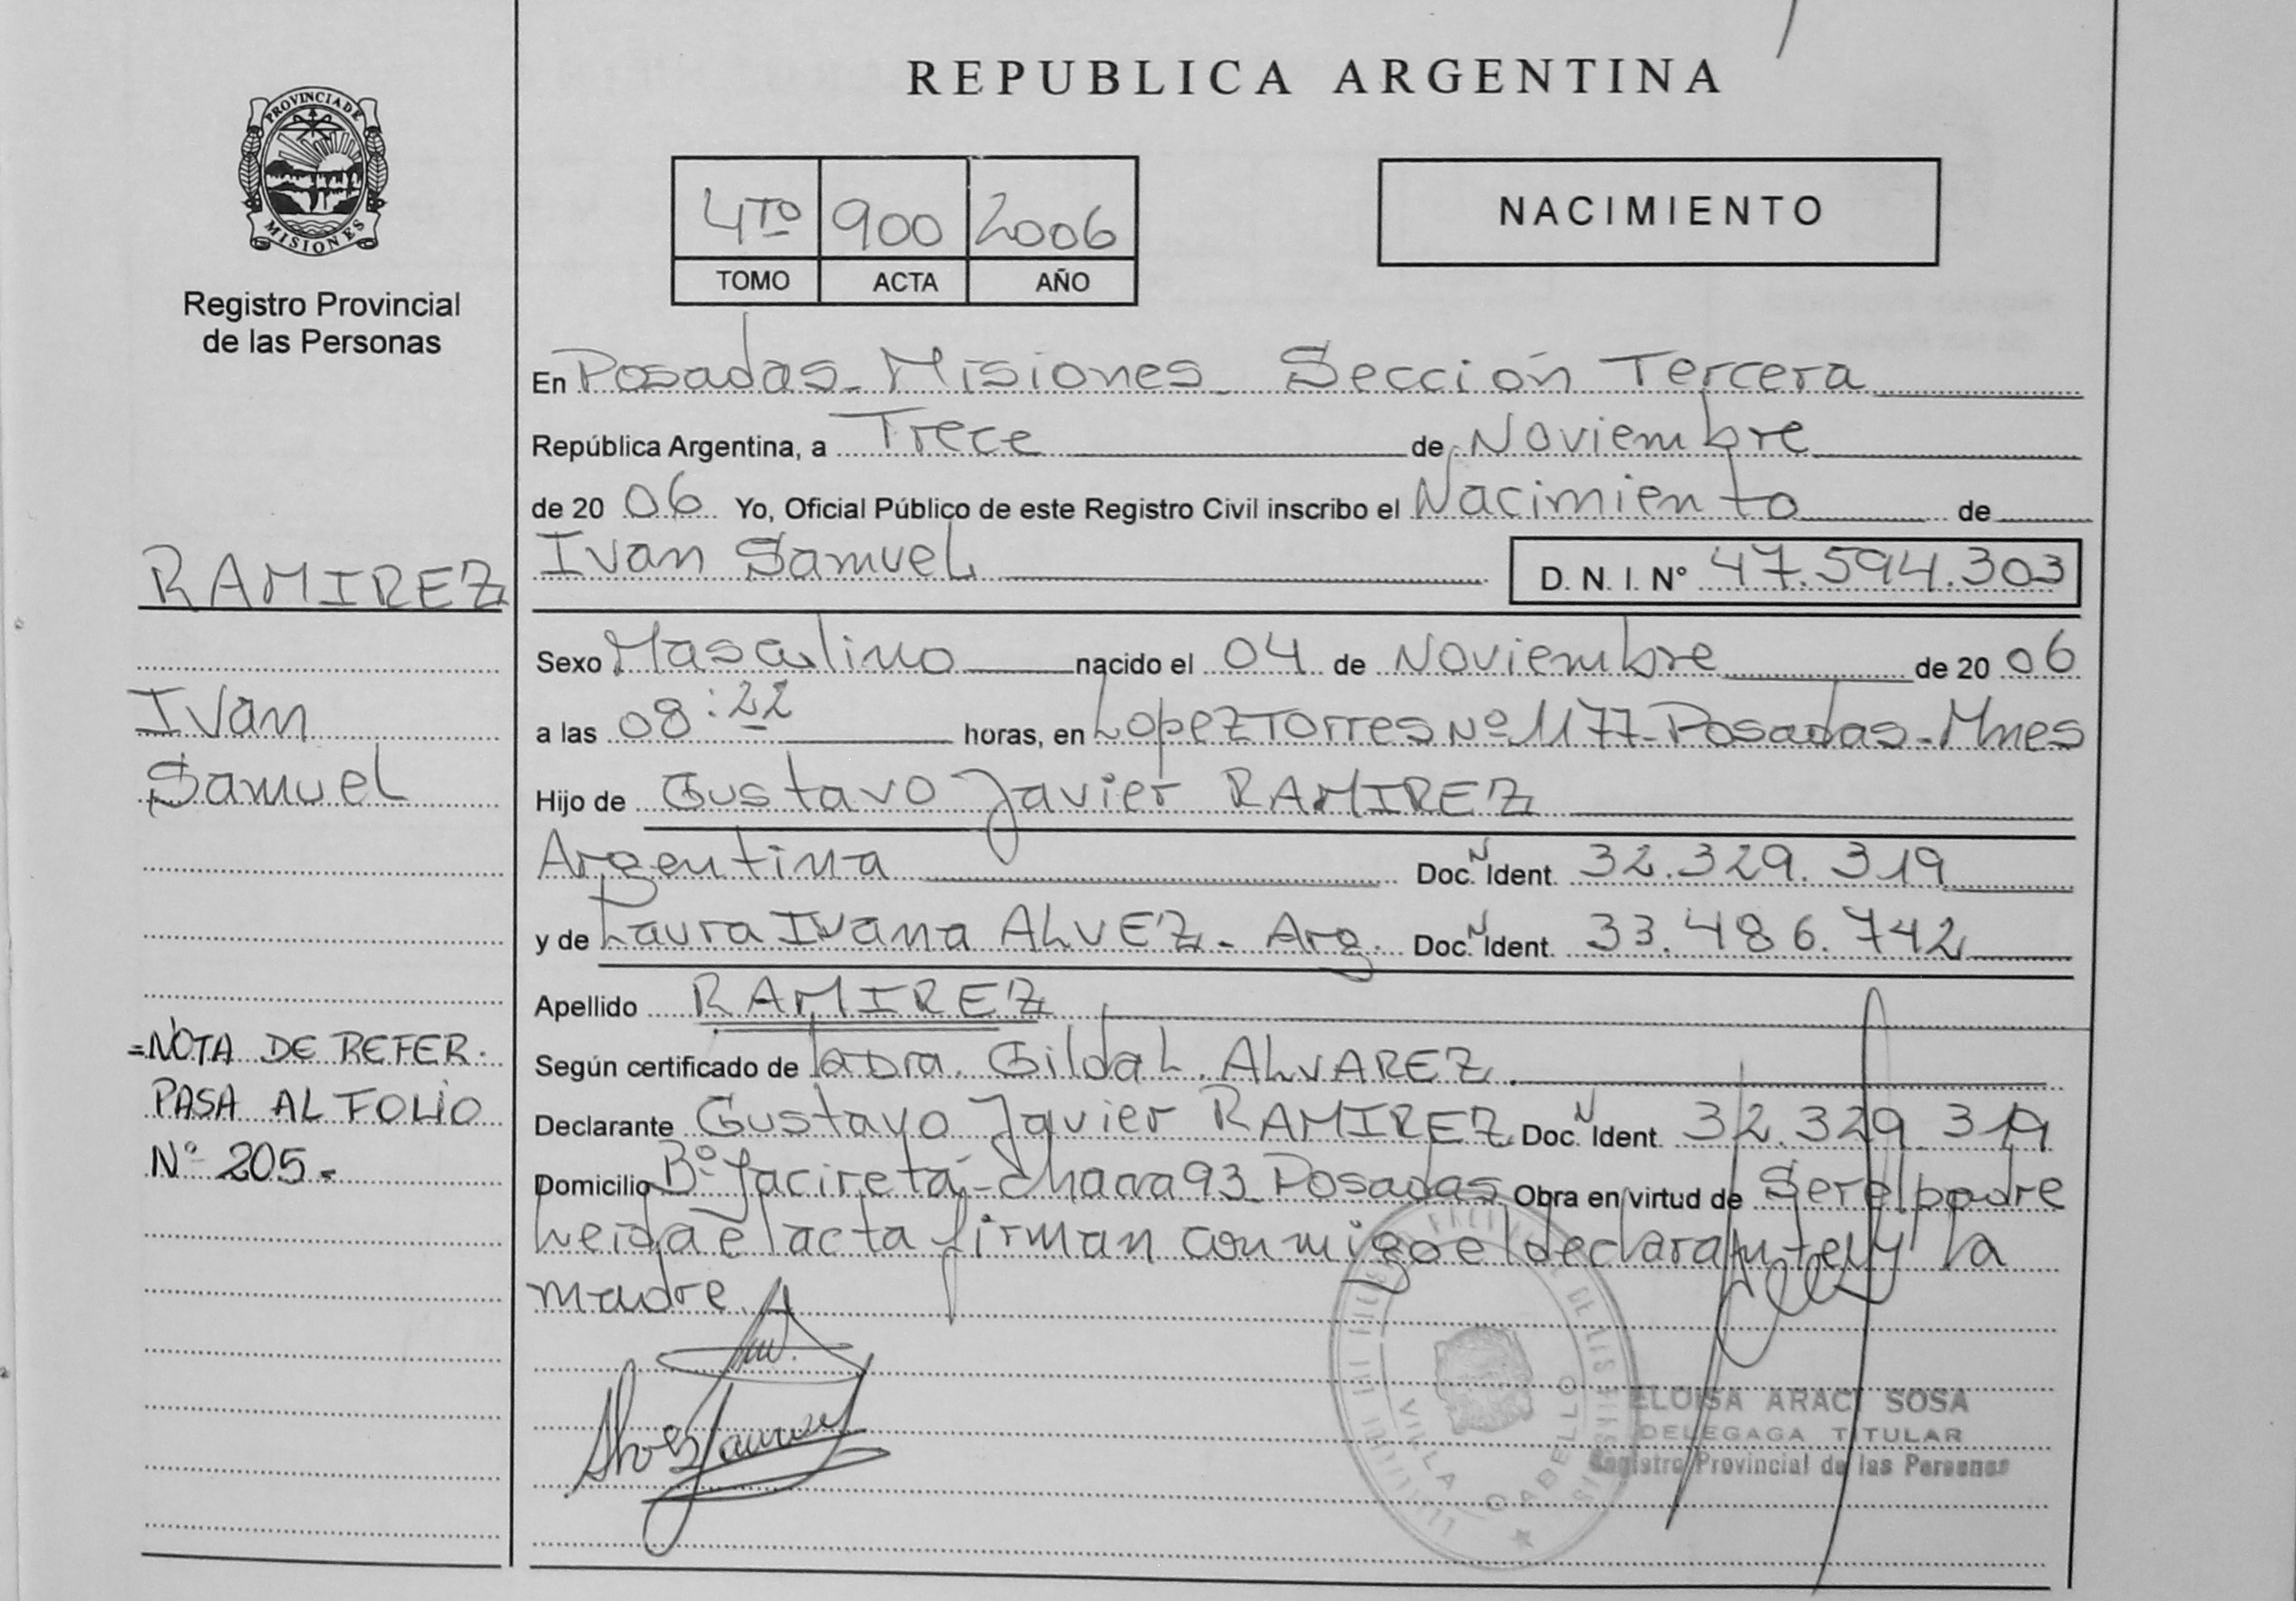 REPUBLICA ARGENTINA
PROVINCIA DE
MISIONES
Registro Provincial
de las Personas
4TO 900 2006
TOMO ACTA AÑO
NACIMIENTO
En Posadas - Misiones - Sección Tercera
República Argentina, a Trece de Noviembre
de 20 06 Yo, Oficial Público de este Registro Civil inscribo el Nacimiento de
Ivan Samuel D. N. I. N° 47.594.303
RAMIREZ
Ivan
Samuel
Sexo Masculino nacido el 04 de Noviembre de 20 06
a las 08:22 horas, en Lopez Torres Nº 1177 - Posadas - Mnes
Hijo de Gustavo Javier RAMIREZ
Argentina Doc. N Ident. 32.329.319
y de Laura Ivana ALVEZ - Arg. Doc. N Ident. 33.486.742
Apellido RAMIREZ
Según certificado de la Dra. Gilda L. ALVAREZ
Declarante Gustavo Javier RAMIREZ Doc. N Ident. 32.329.319
Domicilio Bº Yacireta - Chacra 93 Posadas Obra en virtud de Ser el padre
Leida el acta firman conmigo el declarante y la
madre.
=NOTA DE REFER.
PASA AL FOLIO
Nº 205.-
VILLA CABELLO
ELOISA ARACI SOSA
DELEGAGA TITULAR
Registro Provincial de las Personas